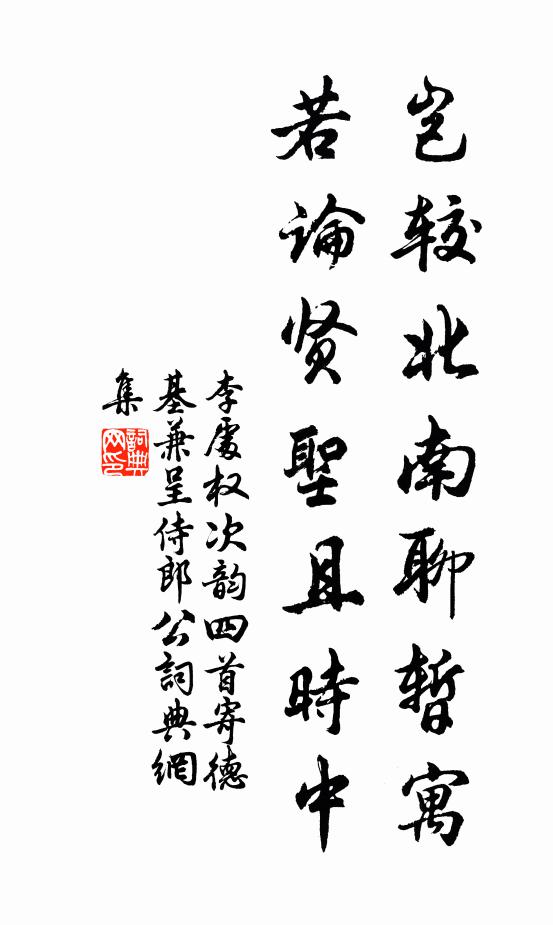 岂较北南聊暂寓
若论贤聖且時中
李處权次韵四首寄德
基兼呈侍郎公詞典網
集
詞典
网印